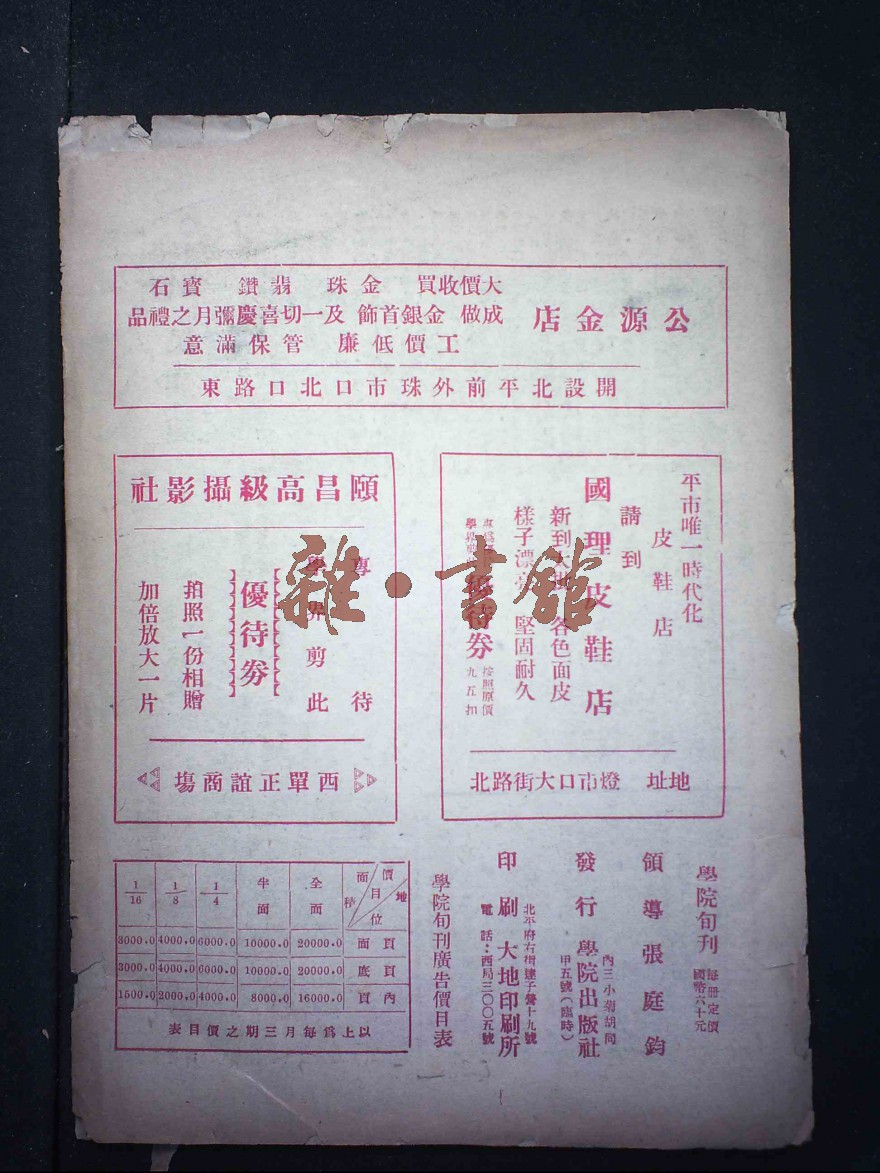 公源金店
大價收買 金珠翡鑽寶石
成做 金銀首飾 及一切喜慶彌月之禮品
工價低廉 管保滿意
開設北平前外珠市口北口路東
平市唯一時代化
皮鞋店
請到
國理皮鞋店
新到大 各色面皮
樣子漂亮 堅固耐久
優待券
按照原價
九五扣
地址 燈市口大街路北
頤昌高級攝影社
專 待
學界剪此
優待券
拍照一份相贈
加倍放大一片
西單正誼商塲
學院旬刊
每册定價
國幣六十元
領導 張庭鈞
發行 學院出版社
內三小菊胡同
甲五號(臨時)
印刷 大地印刷所
北平府右街達子營十九號
電話:西局三〇〇五號
學院旬刊廣告價目表
價目 地位 面積 全面 半面 1/4 1/8 1/16
頁面 20000.0 10000.0 6000.0 4000.0 3000.0
底頁 20000.0 10000.0 6000.0 4000.0 3000.0
內頁 16000.0 8000.0 4000.0 2000.0 1500.0
以上爲每月三期之價目表
雜·書館